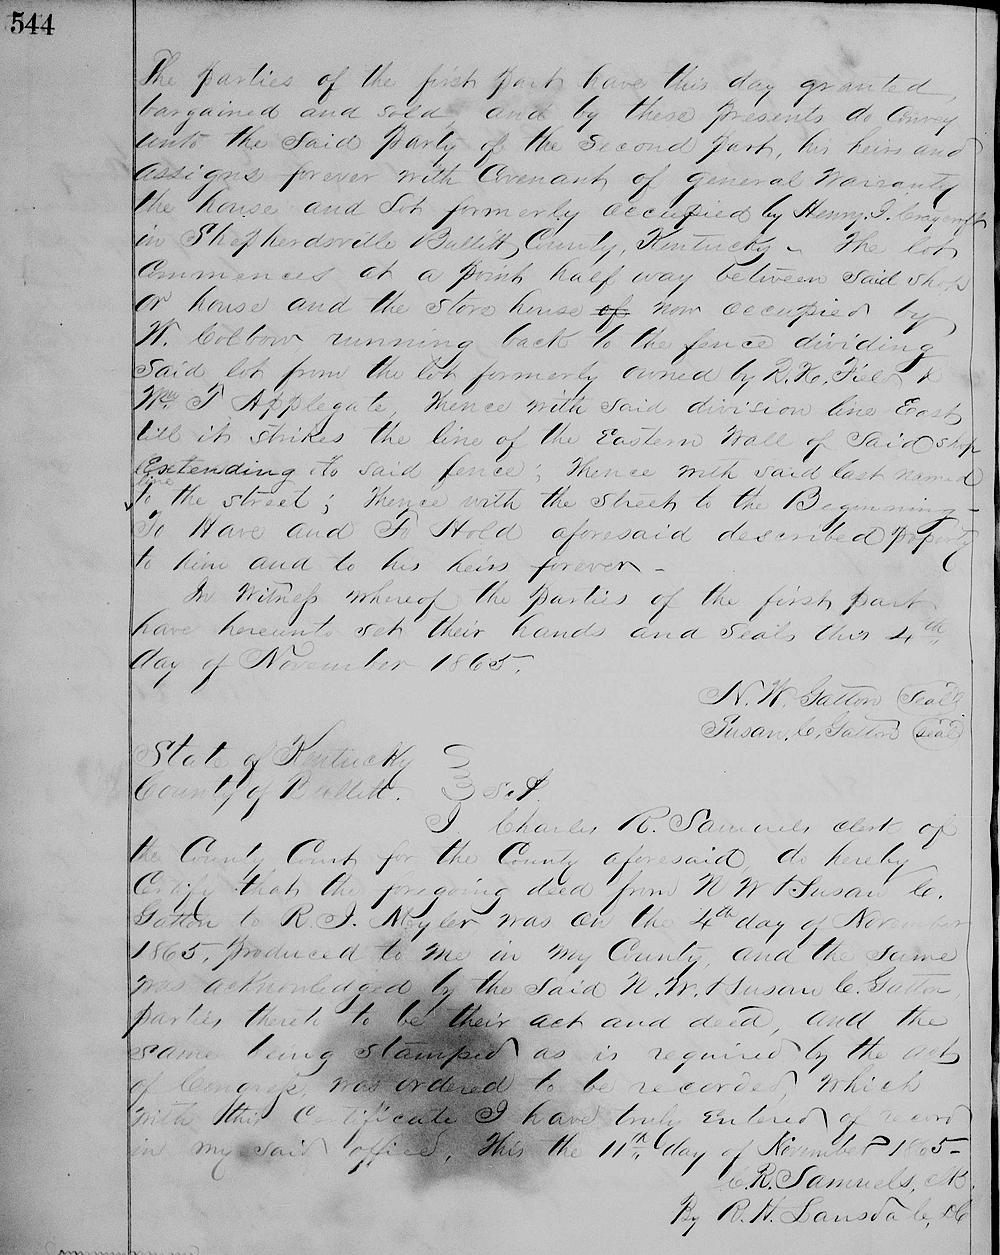 544
The Parties of the first Part have this day granted,
bargained and sold, and by these presents do Convey
unto the Said Party of the Second Part, his heirs and
assigns forever with Covenant of general Warranty
the house and Lot formerly occupied by Henry J. Craycroft
in Shepherdsville Bullitt County, Kentucky - The lot
Commences at a Point half way between said shop
or house and the store house of now occupied by
W. Colbow running back to the fence dividing
said lot from the lot formerly owned by R. H. Field &
Wm T Applegate, Thence with said division line East
till it strikes the line of the Eastern Wall of Said shop
Extending to said fence; Thence with said last named
line
to the street; Thence with the Street to the Beginning-
To Have and To Hold aforesaid described Property
to him and to his heirs forever -
In Witness whereof the Parties of the first part
have hereunto set their hands and Seals this 4th
day of November 1865.
N. W. Gatton (Seal)
Susan. C. Gatton (Seal)
State of Kentucky
County of Bullitt. Sct
I Charles R. Samuels clerk of
the County Court for the County aforesaid, do hereby
Certify that the foregoing deed from N W & Susan C.
Gatton to R. J. Meyler was on the 4th day of November
1865, Produced to me in my County, and the same
was acknowledged by the said N. W. & Susan C. Gatton,
parties thereto to be their act and deed, and the
same being stamped as is required by the act
of Congress, was ordered to be recorded, which
with this Certificate I have truly Entered of record
in my said office, This the 11th day of November 1865-
C. R. Samuels, clk.
By R. H. Lansdale, DC